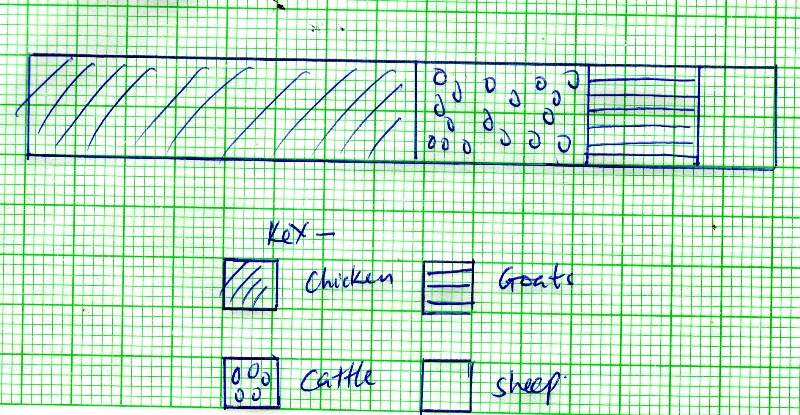 Key -
Chicken Goats
Cattle sheep.